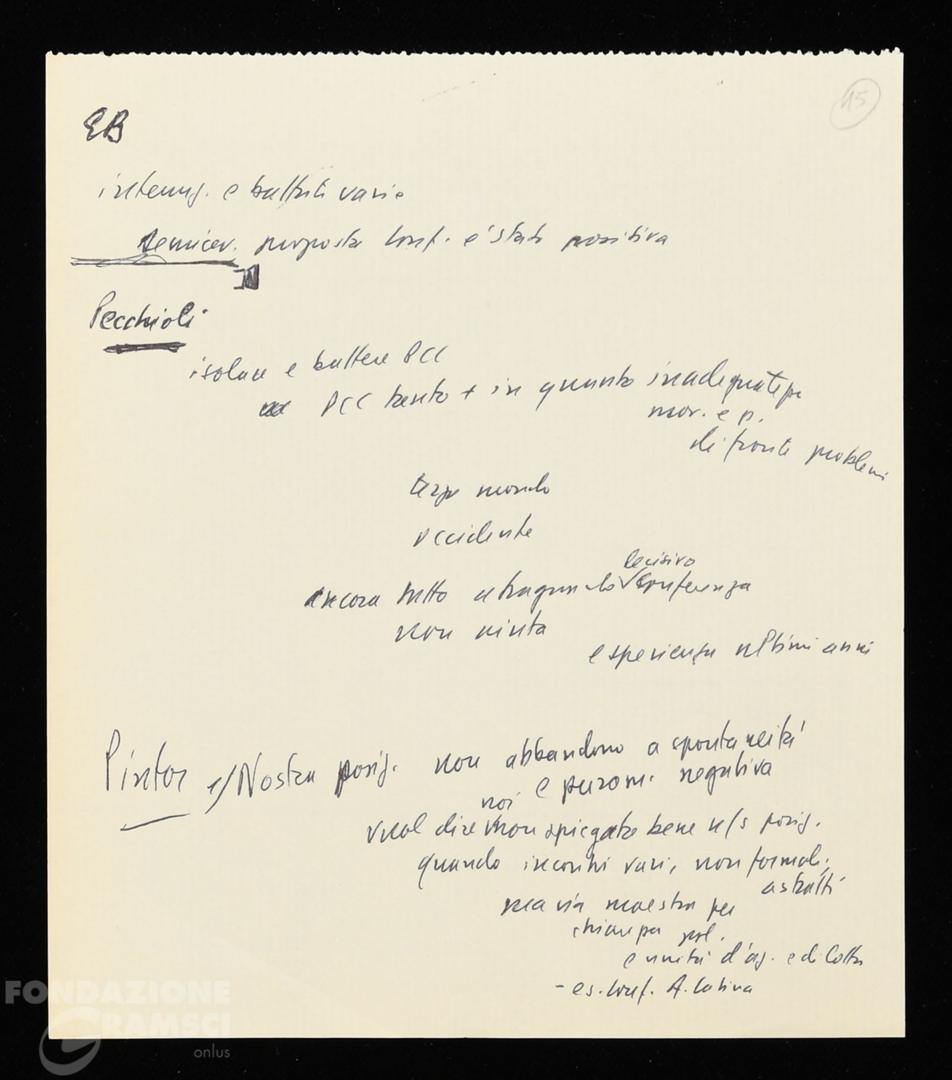 15
EB
interrog. e battute varie
proposta conf. è stata positiva
Pecchioli
isolare e battere PCC
PCC tanto + in quanto inadeguate
mor. e p.
di fronte problemi
terzo mondo
occidente
decisivo
ancora tutto conferenza
non vinta
esperienza ultimi anni
Pintor 1/ Nostra posiz. non abbandono a spontaneità
e negativa
noi
vuol dire non spiegato bene n/s posiz.
quando incontri vari, non formali,
astratti
ma via maestra per
pol.
e unità d'az. e di lotta
- es. conf. A. Latina
FONDAZIONE
GRAMSCI
onlus